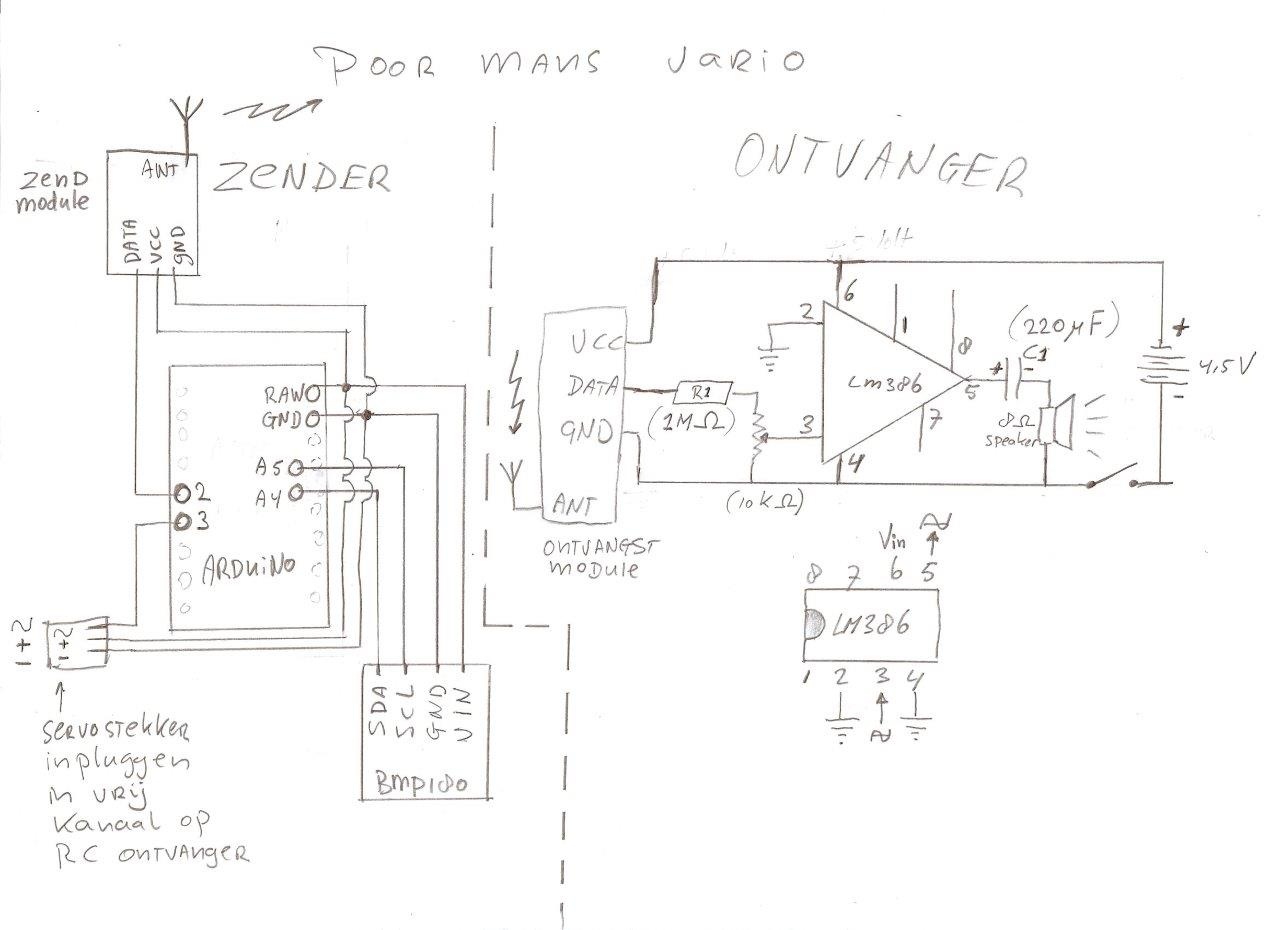 POOR MANS VARIO
ZENDER
ZEND
module
ANT
DATA
VCC
GND
RAW
GND
A5
A4
2
3
ARDUINO
- + ~
- + ~
SERVOSTEKKER
inpluggen
in VRIJ
Kanaal op
RC ONTVANGER
SDA
SCL
GND
VIN
BMP180
ONTVANGER
VCC
DATA
GND
ANT
ONTVANGST
module
R1
(1MΩ)
(10KΩ)
2
3
6
1
8
LM386
5
7
4
(220µF)
+ C1 -
8Ω
speaker
+
4,5V
-
Vin
8 7 6 5
LM386
1 2 3 4